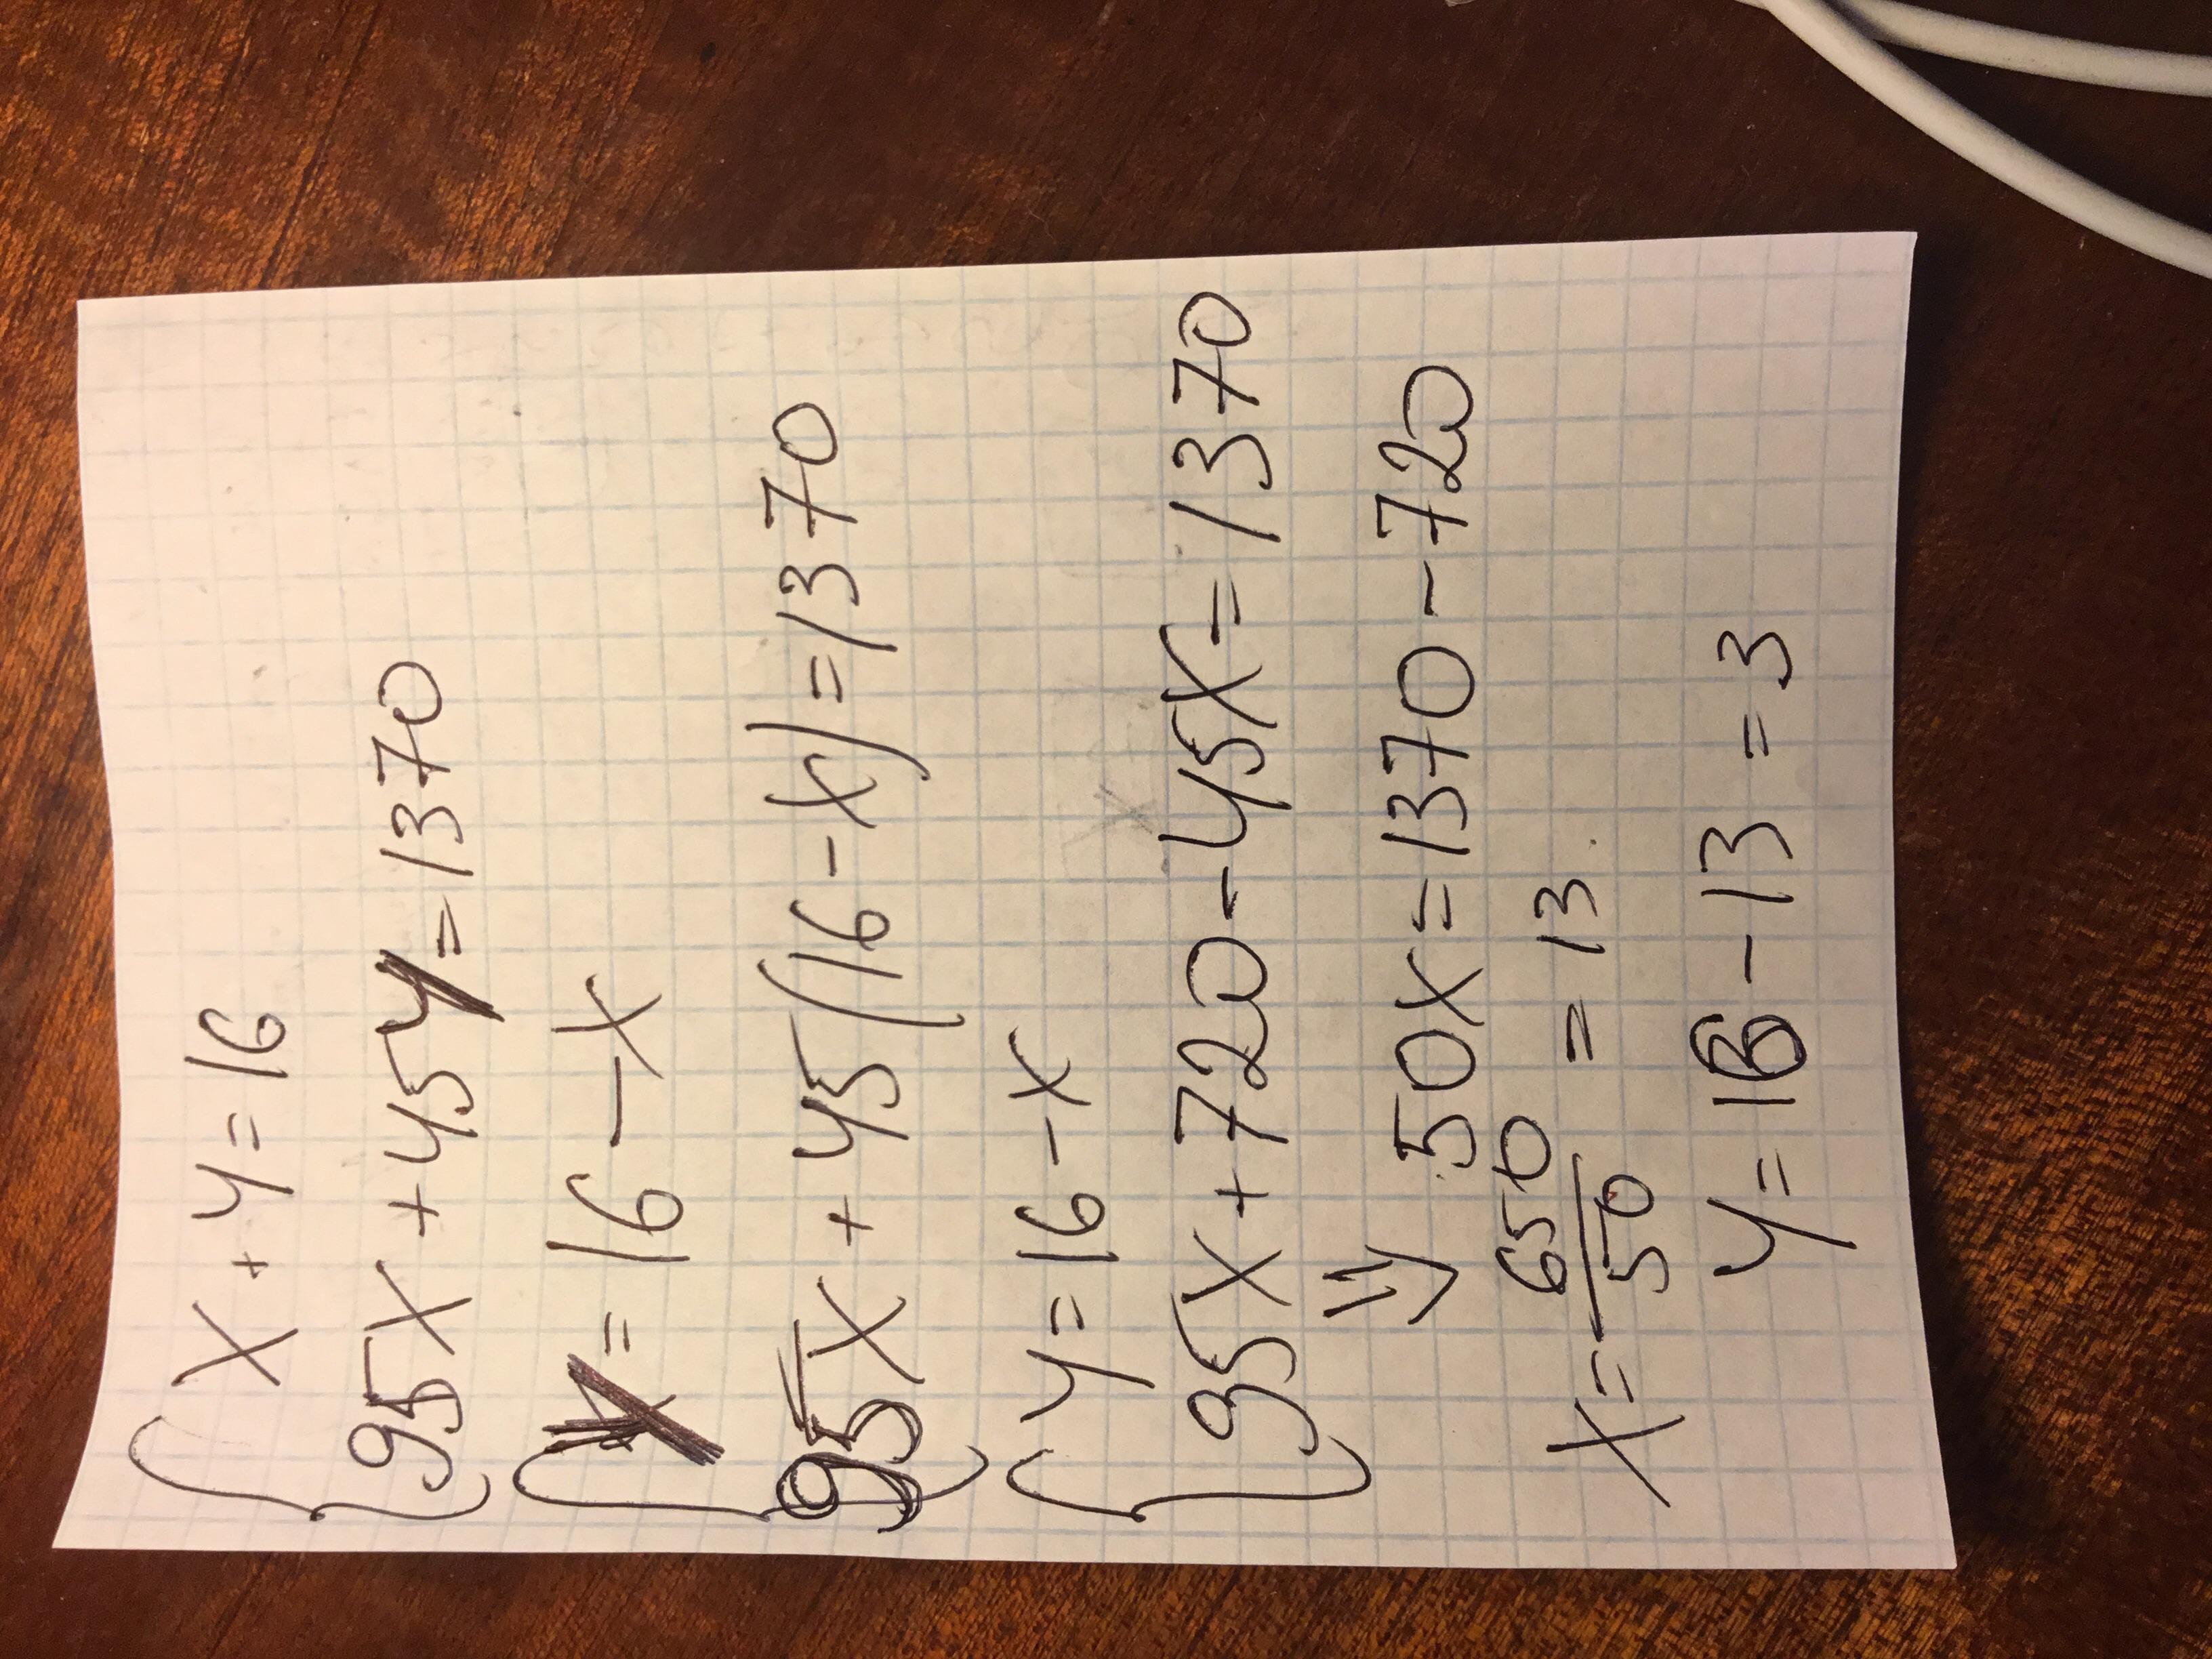 x + y = 16
95x + 45y = 1370
y = 16 - x
95x + 45(16 - x) = 1370
y = 16 - x
95x + 720 - 45x = 1370
⇓ 50x = 1370 - 720
x = 650/50 = 13
y = 16 - 13 = 3